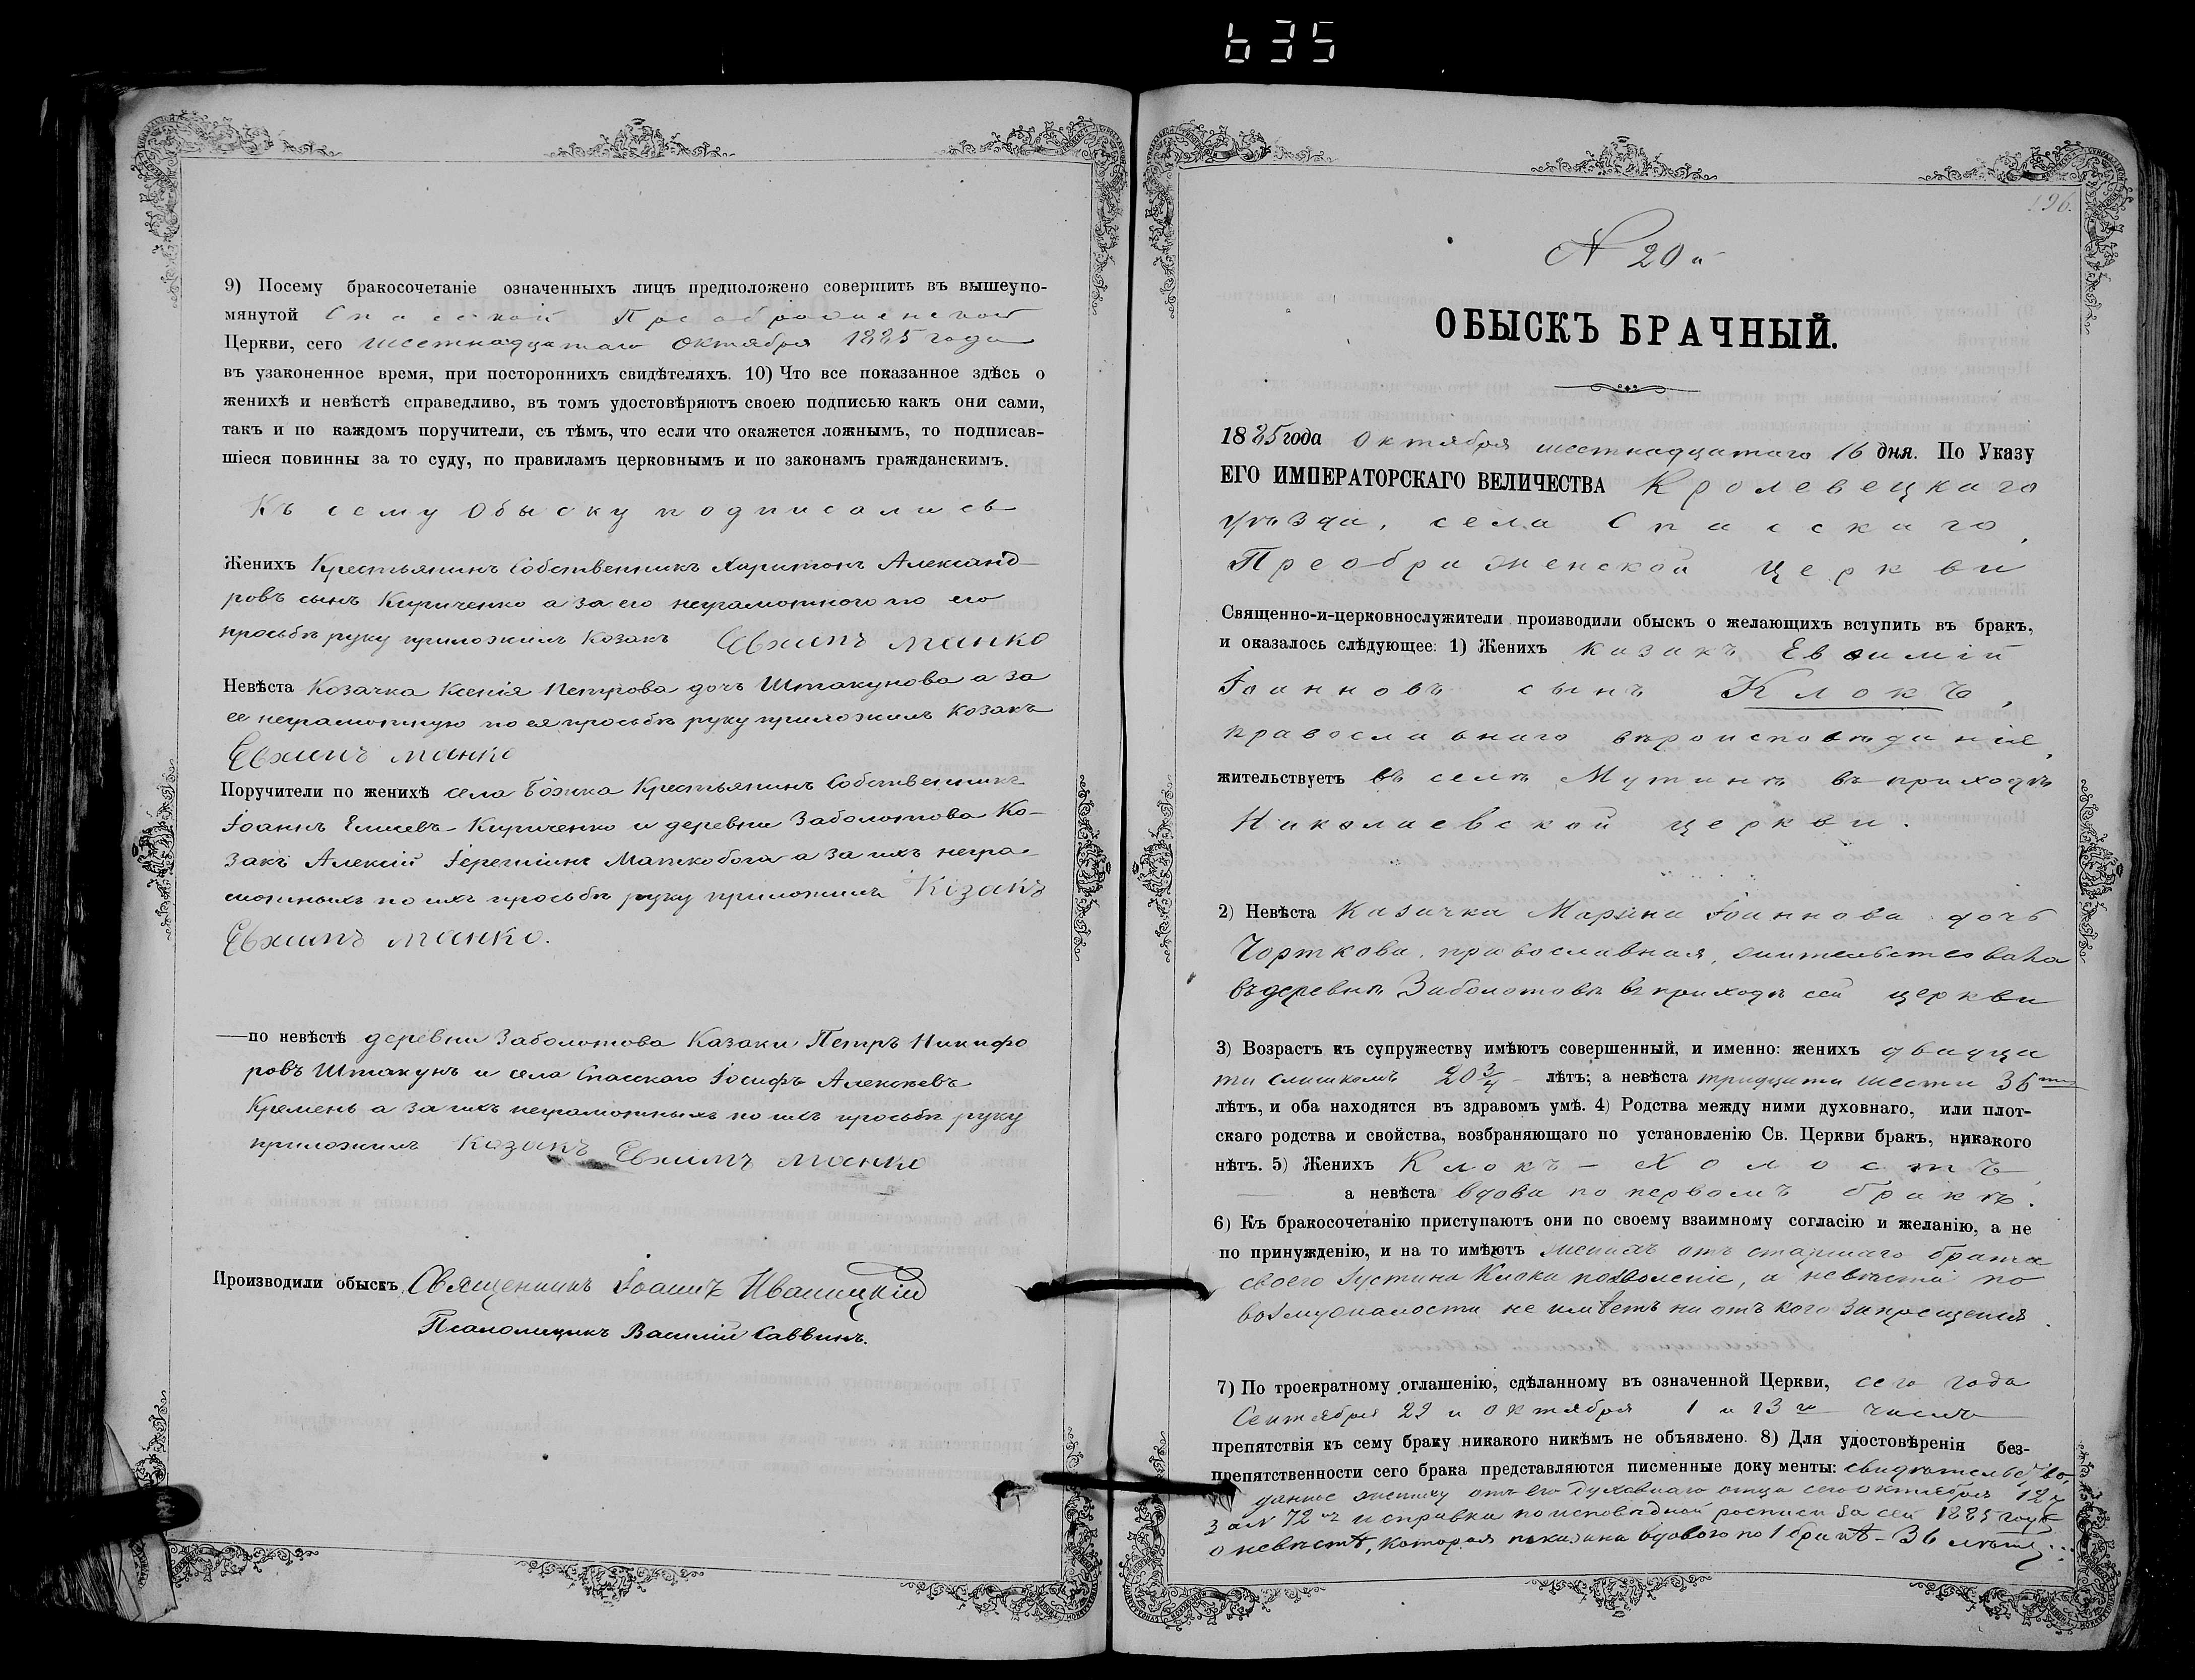 635
9) Посему бракосочетаніе означенныхъ лицъ предположено совершить въ вышеупо-
мянутой Спасской Преображенской
Церкви, сего шестнадцатаго Октября 1885 года
въ узаконенное время, при постороннихъ свидѣтеляхъ. 10) Что все показанное здѣсь о
женихѣ и невѣстѣ справедливо, въ томъ удостовѣряютъ своею подписью какъ они сами,
такъ и по каждомъ поручители, съ тѣмъ, что если что окажется ложнымъ, то подписав-
шіеся повинны за то суду, по правиламъ церковнымъ и по законамъ гражданскимъ.
Къ сему Обыску подписались
Женихъ Крестьянинъ Собственникъ Харитонъ Александ-
ровъ сынъ Кириченко а за его неграмотного по его
просьбѣ руку приложилъ Козакъ Евхимъ Манко
Невѣста Козачка Ксенія Петрова дочь Штакунова а за
ее неграмотную по ея просьбѣ руку приложилъ Козакъ
Евхимъ Манко
Поручители по женихѣ села Божка Крестьянинъ Собственникъ
Іоаннъ Елисеевъ Кириченко и деревни Заболотова Ко-
закъ Алексій Маткобога а за ихъ негра-
мотныхъ по ихъ просьбѣ руку приложилъ Козакъ
Евхимъ Манко.
—по невѣстѣ деревни Заболотова Казаки Петръ Никифо
ровъ Штакунъ и села Спасскаго Іосифъ Алексѣевъ
Кремень а за ихъ неграмотныхъ по ихъ просьбѣ руку
приложилъ Казакъ Евхимъ Манко
Производили обыскъ Священникъ Іоаннъ Иваницкій
Псаломщикъ Василій Саввинъ.
196.
N 20й
ОБЫСКЪ БРАЧНЫЙ.
1885 года Октября шестнадцатаго 16 дня. По Указу
ЕГО ИМПЕРАТОРСКАГО ВЕЛИЧЕСТВА Кролевецкаго
уѣзда, села Спасскаго,
Преображенской Церкви
Священно-и-церковнослужители производили обыскъ о желающихъ вступить въ бракъ,
и оказалось слѣдующее: 1) Женихъ казакъ Евѳимій
Іоанновъ сынъ Клокъ,
православнаго вѣроисповѣданія,
жительствуетъ въ селѣ Мутинѣ въ приходѣ
Николаевской церкви.
2) Невѣста Казачка Марина Іоаннова дочь
Чорткова, православная, жительствовала
въ деревнѣ Заболотовѣ въ приходѣ сей церкви
3) Возрастъ къ супружеству имѣютъ совершенный, и именно: женихъ двадца
ти слишкомъ 20 3/4 лѣтъ; а невѣста тридцати шести 36ти
лѣтъ, и оба находятся въ здравомъ умѣ. 4) Родства между ними духовнаго, или плот-
скаго родства и свойства, возбраняющаго по установленію Св. Церкви бракъ, никакого
нѣтъ. 5) Женихъ Клокъ - Холостъ
а невѣста вдова по первомъ бракѣ.
6) Къ бракосочетанію приступаютъ они по своему взаимному согласію и желанію, а не
по принужденію, и на то имѣютъ женихъ отъ старшаго брата
своего Іустина Клока позволеніе, а невѣста по
возмужалости не имѣетъ ни отъ кого запрещенія.
7) По троекратному оглашенію, сдѣланному въ означенной Церкви, сего года
Сентября 29 и Октября 1 и 13го числъ
препятствія къ сему браку никакого никѣмъ не объявлено. 8) Для удостовѣренія без-
препятственности сего брака представляются писменные документы: свидѣтельство,
данное жениху отъ его духовнаго отца сего октября 12 д
за N 72мъ и справка по исповѣдной росписи за сей 1885 годъ
о невѣстѣ, которая показана вдовою по 1 бракѣ - 36 лѣтъ